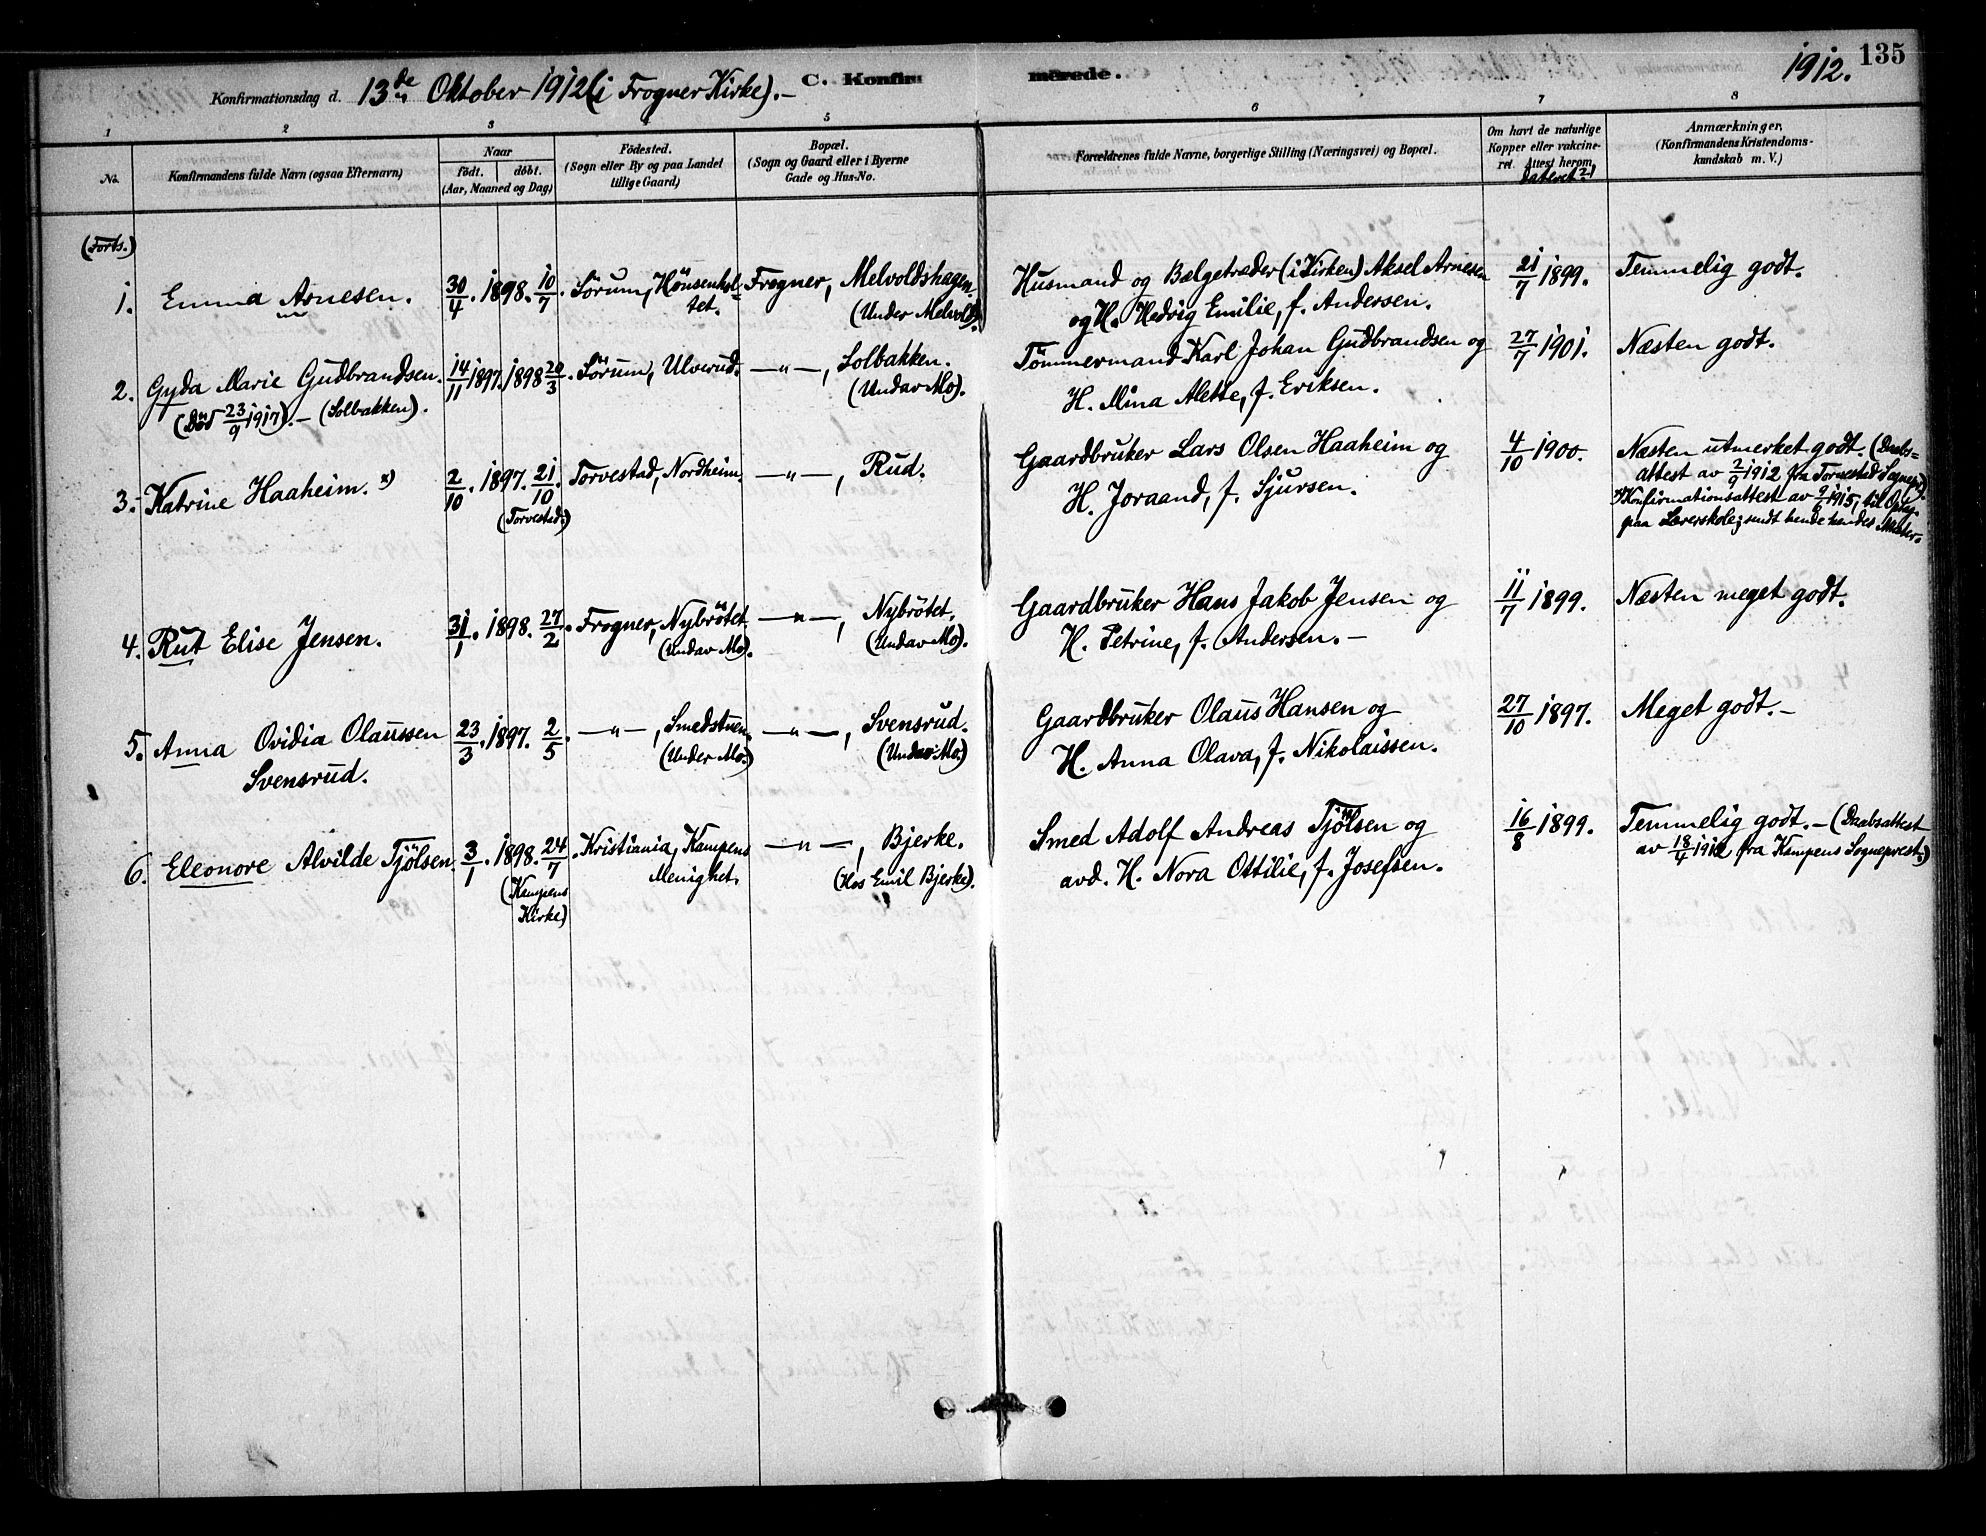 135
1912.
C. Konfirmerede.
Konfirmationsdag d. 13de Oktober 1912 (i Frogner Kirke). –
1 2 3 4 5 6 7 8
No.
Konfirmandens fulde Navn (ogsaa Efternavn)
Naar
födt. döbt.
(Aar, Maaned og Dag)
Födested.
(Sogn eller By og paa Landet
tillige Gaard)
Bopæl.
(Sogn og Gaard eller i Byerne
Gade og Hus-No.
Forældrenes fulde Navne, borgerlige Stilling (Næringsvei) og Bopæl.
Om havt de naturlige
Kopper eller vakcine-
ret. Attest herom
dateret
Anmærkninger,
(Konfirmandens Kristendoms-
kundskab m. V.)
(Forts.)
1. Emma Arnesen. 30/4. 1898. 10/7. Sörum, Hönsenhol- Frogner, Melvoldshagen. Husmand og Bælgetræder (i Kirken) Aksel Arnesen 21/7 1899. Temmelig godt.
tet. (Under Melvold). og H. Hedvig Emilie, f. Andersen.
2. Gyda Marie Gudbrandsen. 14/11 1897. 1898 20/3. Sörum, Ulverud. –"–, Solbakken. Tömmermand Karl Johan Gudbrandsen og 27/7 1901. Næsten godt.
(Död 23/9 1917). – (Solbakken). (Und av Mo). H. Mina Alette, f. Eriksen.
3. Katrine Haaheim. x) 2/10. 1897. 21/10. Torvestad, Nordheim. –"–, Rud. Gaardbruker Lars Olsen Haaheim og 4/10 1900. Næsten utmerket godt. (Daabs-
(Torvestad.) H. Joraand, f. Sjursen. attest av 2/9 1912 fra Torvestad Sognepr.)
x) Konfirmationsattest av 9/6 1915, til Optag.
paa Lærerskole; sendt hende hendes Moder.
4. Rut Elise Jensen. 31/1. 1898. 27/2. Frogner, Nybrötet –"–, Nybrötet. Gaardbruker Hans Jakob Jensen og 11/7 1899. Næsten meget godt.
(Und av Mo). (Und av Mo). H. Petrine, f. Andersen. –
5. Anna Ovidia Olaussen 23/3. 1897. 2/5. –"–, Smedstuen. –"–, Svensrud. Gaardbruker Olaus Hansen og 27/10 1897. Meget godt. –
Svensrud. (Under Mo.) (Und av Mo.) H. Anna Olava, f. Nikolaissen.
6. Eleonore Alvilde Tjölsen. 3/1. 1898. 24/7. Kristiania, Kampens –"–, Bjerke. Smed Adolf Andreas Tjölsen og 16/8 1899. Temmelig godt. – (Daabsattest
(Kampens Kirke) Menighet. (Hos Emil Bjerke). avd. H. Nora Ottilie, f. Josefsen. av 18/4 1912 fra Kampens Sogneprest.)